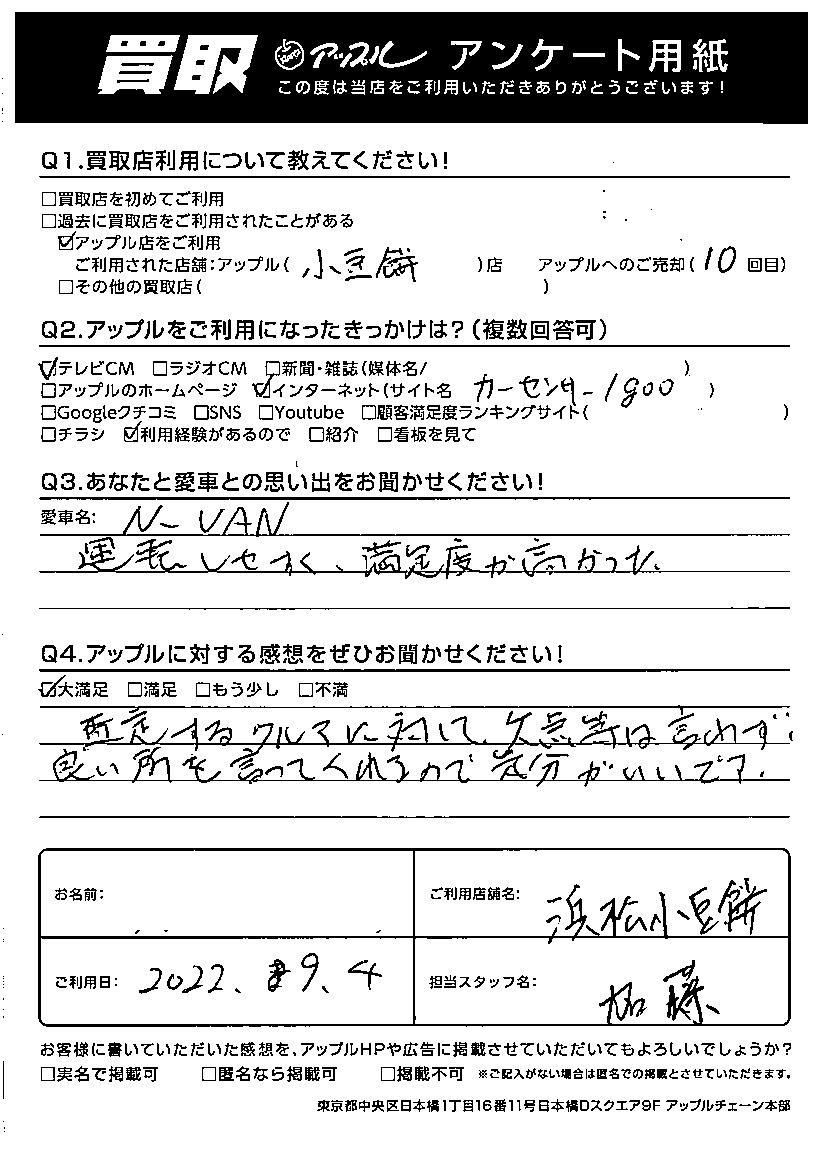 買取 アップル アンケート用紙
この度は当店をご利用いただきありがとうございます!
Q1.買取店利用について教えてください!
□買取店を初めてご利用
□過去に買取店をご利用されたことがある
☑アップル店をご利用
ご利用された店舗:アップル( 小豆餅 )店 アップルへのご売却( 10 回目)
□その他の買取店( )
Q2.アップルをご利用になったきっかけは?(複数回答可)
☑テレビCM □ラジオCM □新聞・雑誌(媒体名/ )
□アップルのホームページ ☑インターネット(サイト名 カーセンサー/goo )
□Googleクチコミ □SNS □Youtube □顧客満足度ランキングサイト( )
□チラシ ☑利用経験があるので □紹介 □看板を見て
Q3.あなたと愛車との思い出をお聞かせください!
愛車名: N-VAN
運転しやすく、満足度が高かった。
Q4.アップルに対する感想をぜひお聞かせください!
☑大満足 □満足 □もう少し □不満
査定するクルマに対して、欠点等は言わず、
良い所を言ってくれるので気分がいいです。
お名前: ご利用店舗名: 浜松小豆餅
ご利用日: 2022. 9. 4 担当スタッフ名: 加藤
お客様に書いていただいた感想を、アップルHPや広告に掲載させていただいてもよろしいでしょうか?
□実名で掲載可 □匿名なら掲載可 □掲載不可 ※ご記入がない場合は匿名での掲載とさせていただきます。
東京都中央区日本橋1丁目16番11号日本橋Dスクエア9F アップルチェーン本部